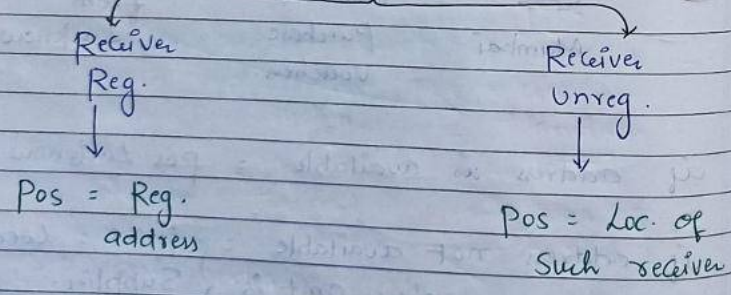 Receiver
Reg.
Pos = Reg.
address
Receiver
unreg.
Pos = Loc. of
Such receiver